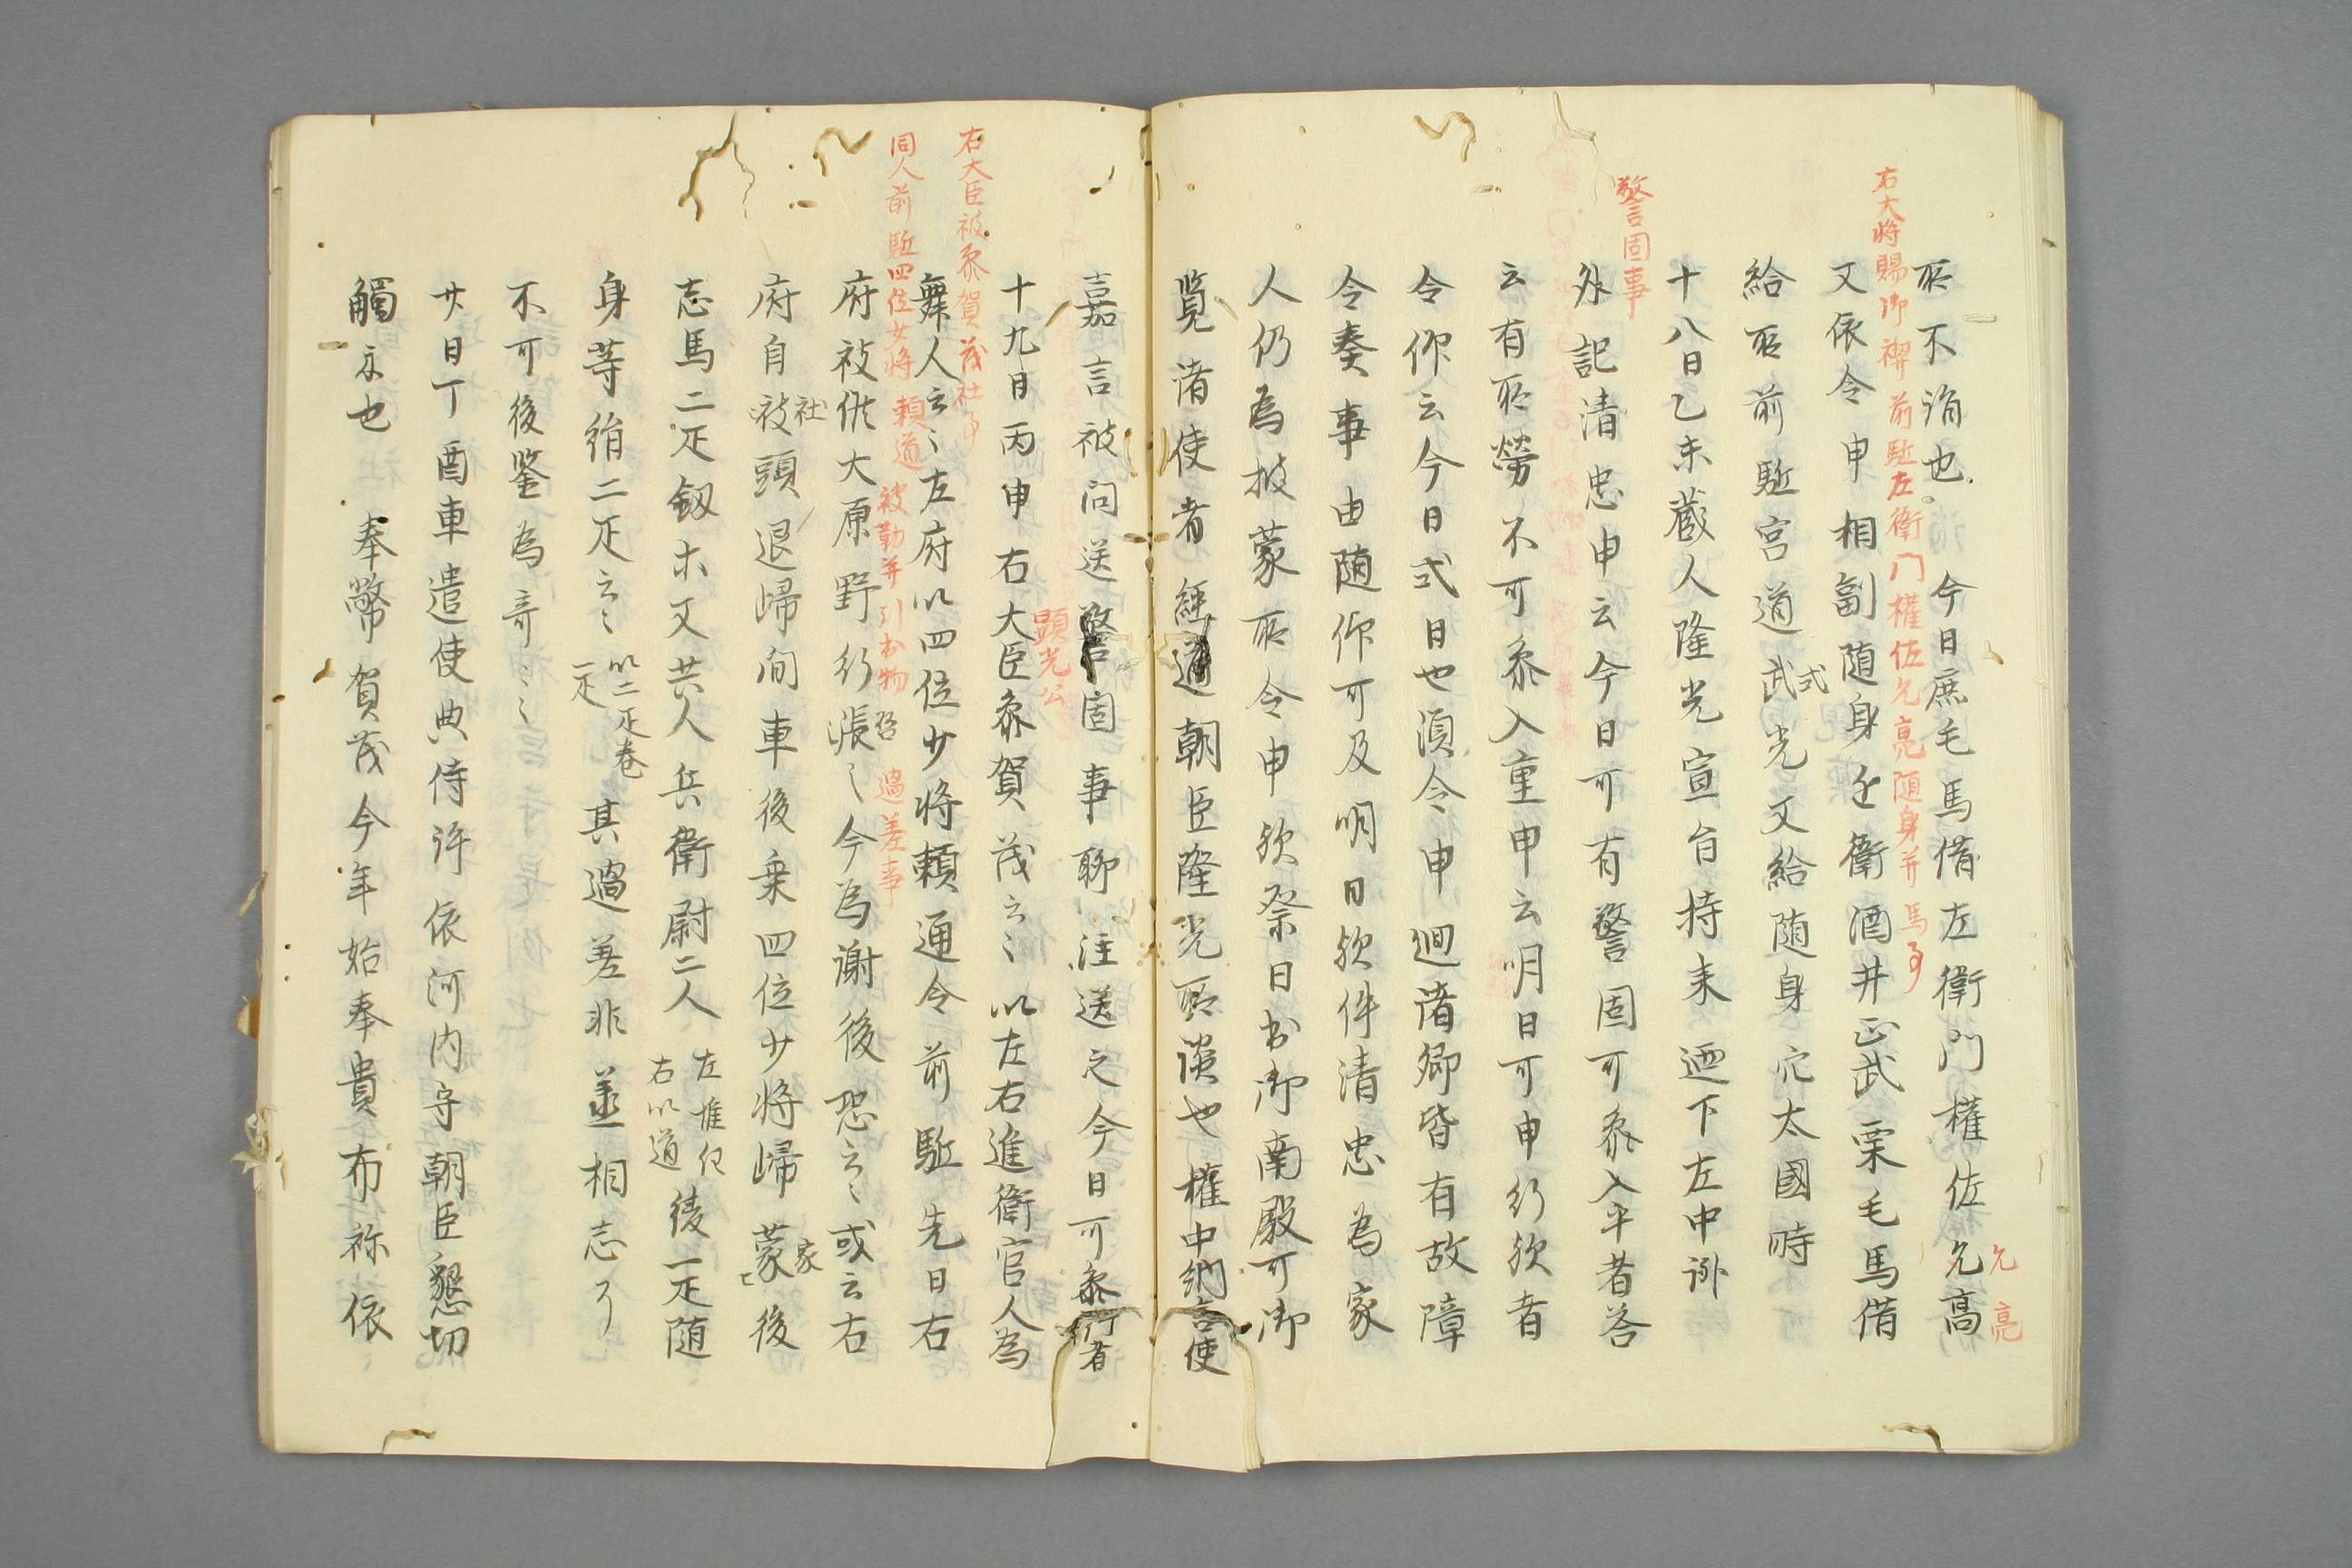 右大将賜御禊前駈左衛門權佐允亮随身并馬事
所不滴也今日庶毛馬借左衛門權佐允高
允亮
又依令申相副随身近衛酒井正武栗毛馬借
給所前駈宮道武光又給随身穴太國時
式
十八日乙未蔵人隆光宣旨持来廼下左中弁
警固事
外記清忠申云今日可有警固可參入乎者答
云有所勞不可參入重申云明日可申行欤者
令仰云今日式日也須令申廻諸卿皆有故障
令奏事由随仰可及明日欤件清忠為家
人仍為披蒙所令申欤祭日出御南殿可御
覧诸使者經通朝臣隆光所談也權中納言使
嘉言被问送警固事聊注送之今日可參行者
右大臣被參賀茂社事
顕光公
十九日丙申右大臣參賀茂云〻以左右進衛官人為
同人前駈四位少将頼道被勤并引出物 過差事
舞人云〻左府以四位少将頼通令前駈先日右
府被供大原野行漲〻今為謝後恐云〻或云右
府自被頭退帰间車後乗四位少将帰蒙後
社
家
志馬二疋釼木又共人兵衛尉二人左惟任右以道後一疋随
身等絹二疋云〻以二疋巻一疋其過差非並相志了
不可後鉴為奇〻〻
廿日丁酉車遣使典侍許依河内守朝臣懇切
觸示也奉幣賀茂今年始奉貴布祢依